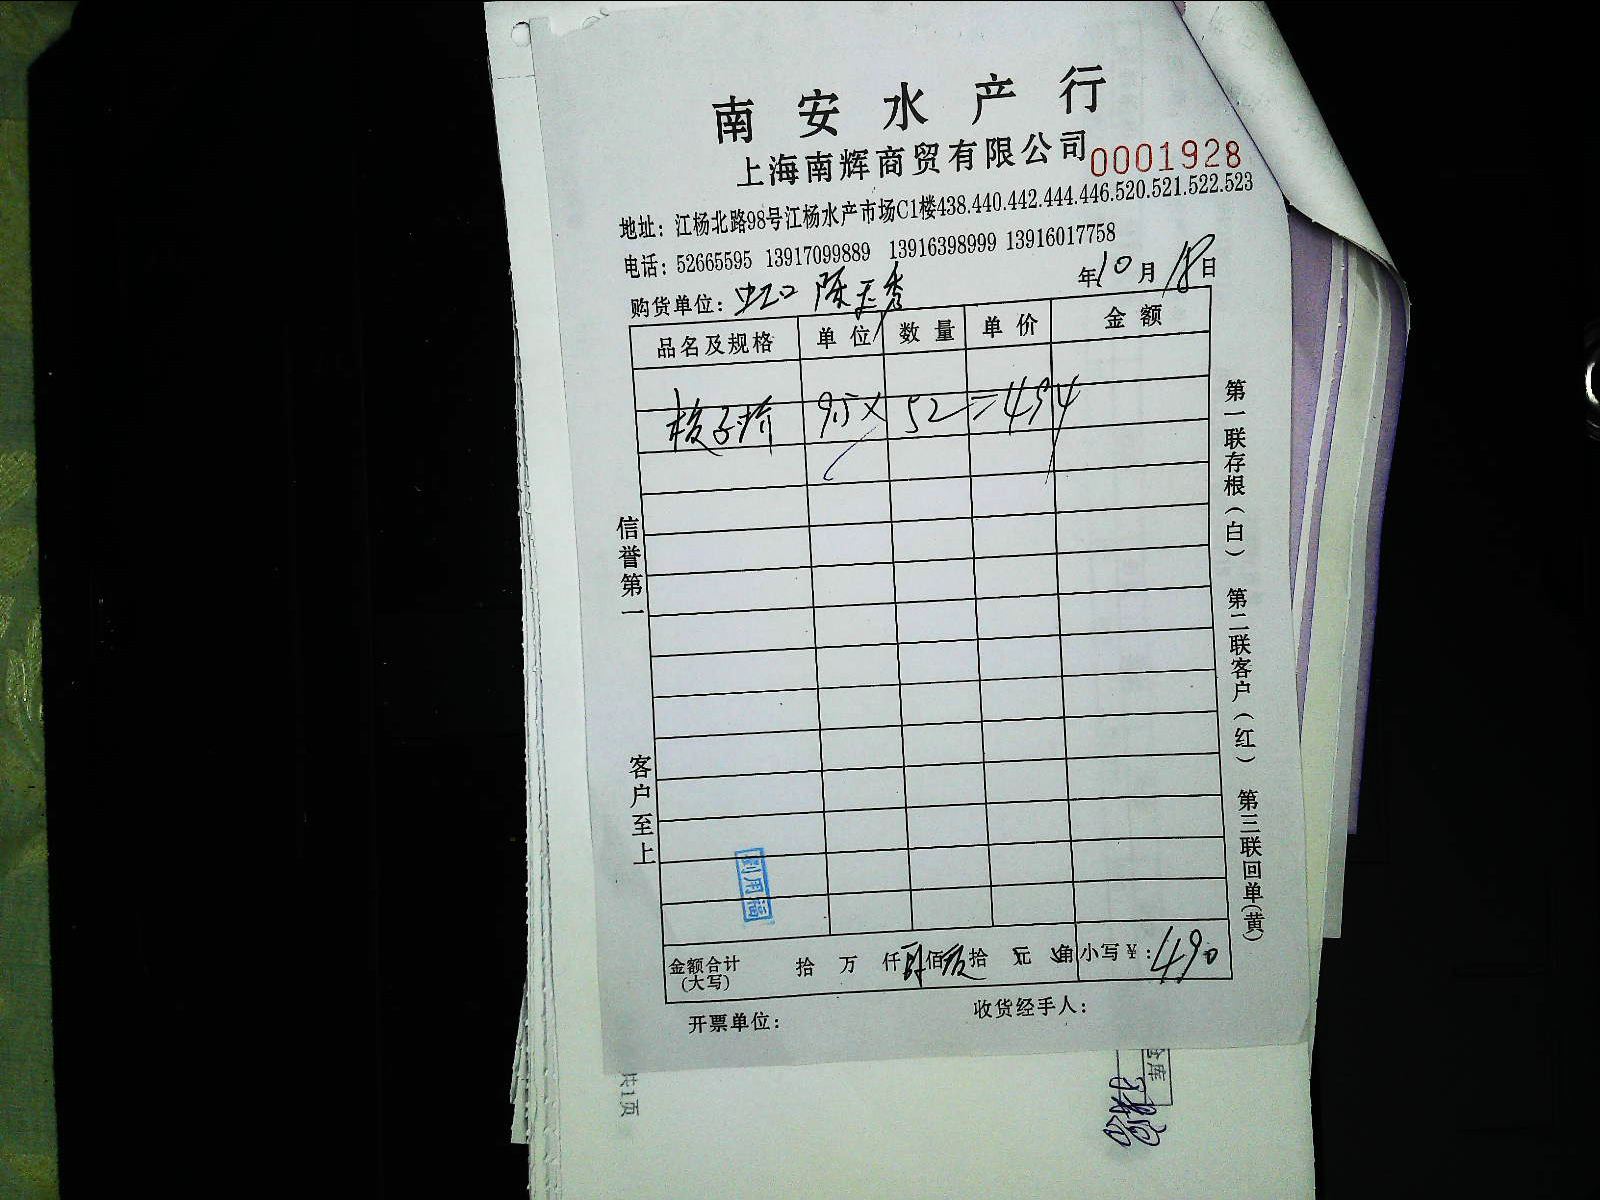 南安水产行
上海南辉商贸有限公司 0001928
地址：江杨北路98号江杨水产市场C1楼438.440.442.444.446.520.521.522.523
电话：52665595 13917099889 13916398999 13916017758
购货单位：虹口 陈玉秀 年10月18日
品名及规格 单位 数量 单价 金额
梭子蟹 9.5 × 52 = 494
信誉第一
客户至上
第一联存根(白)
第二联客户(红)
第三联回单(黄)
金额合计(大写) 拾 万 仟 肆佰 玖拾 元 角 小写￥：490
开票单位：
收货经手人：
共1页
仓库